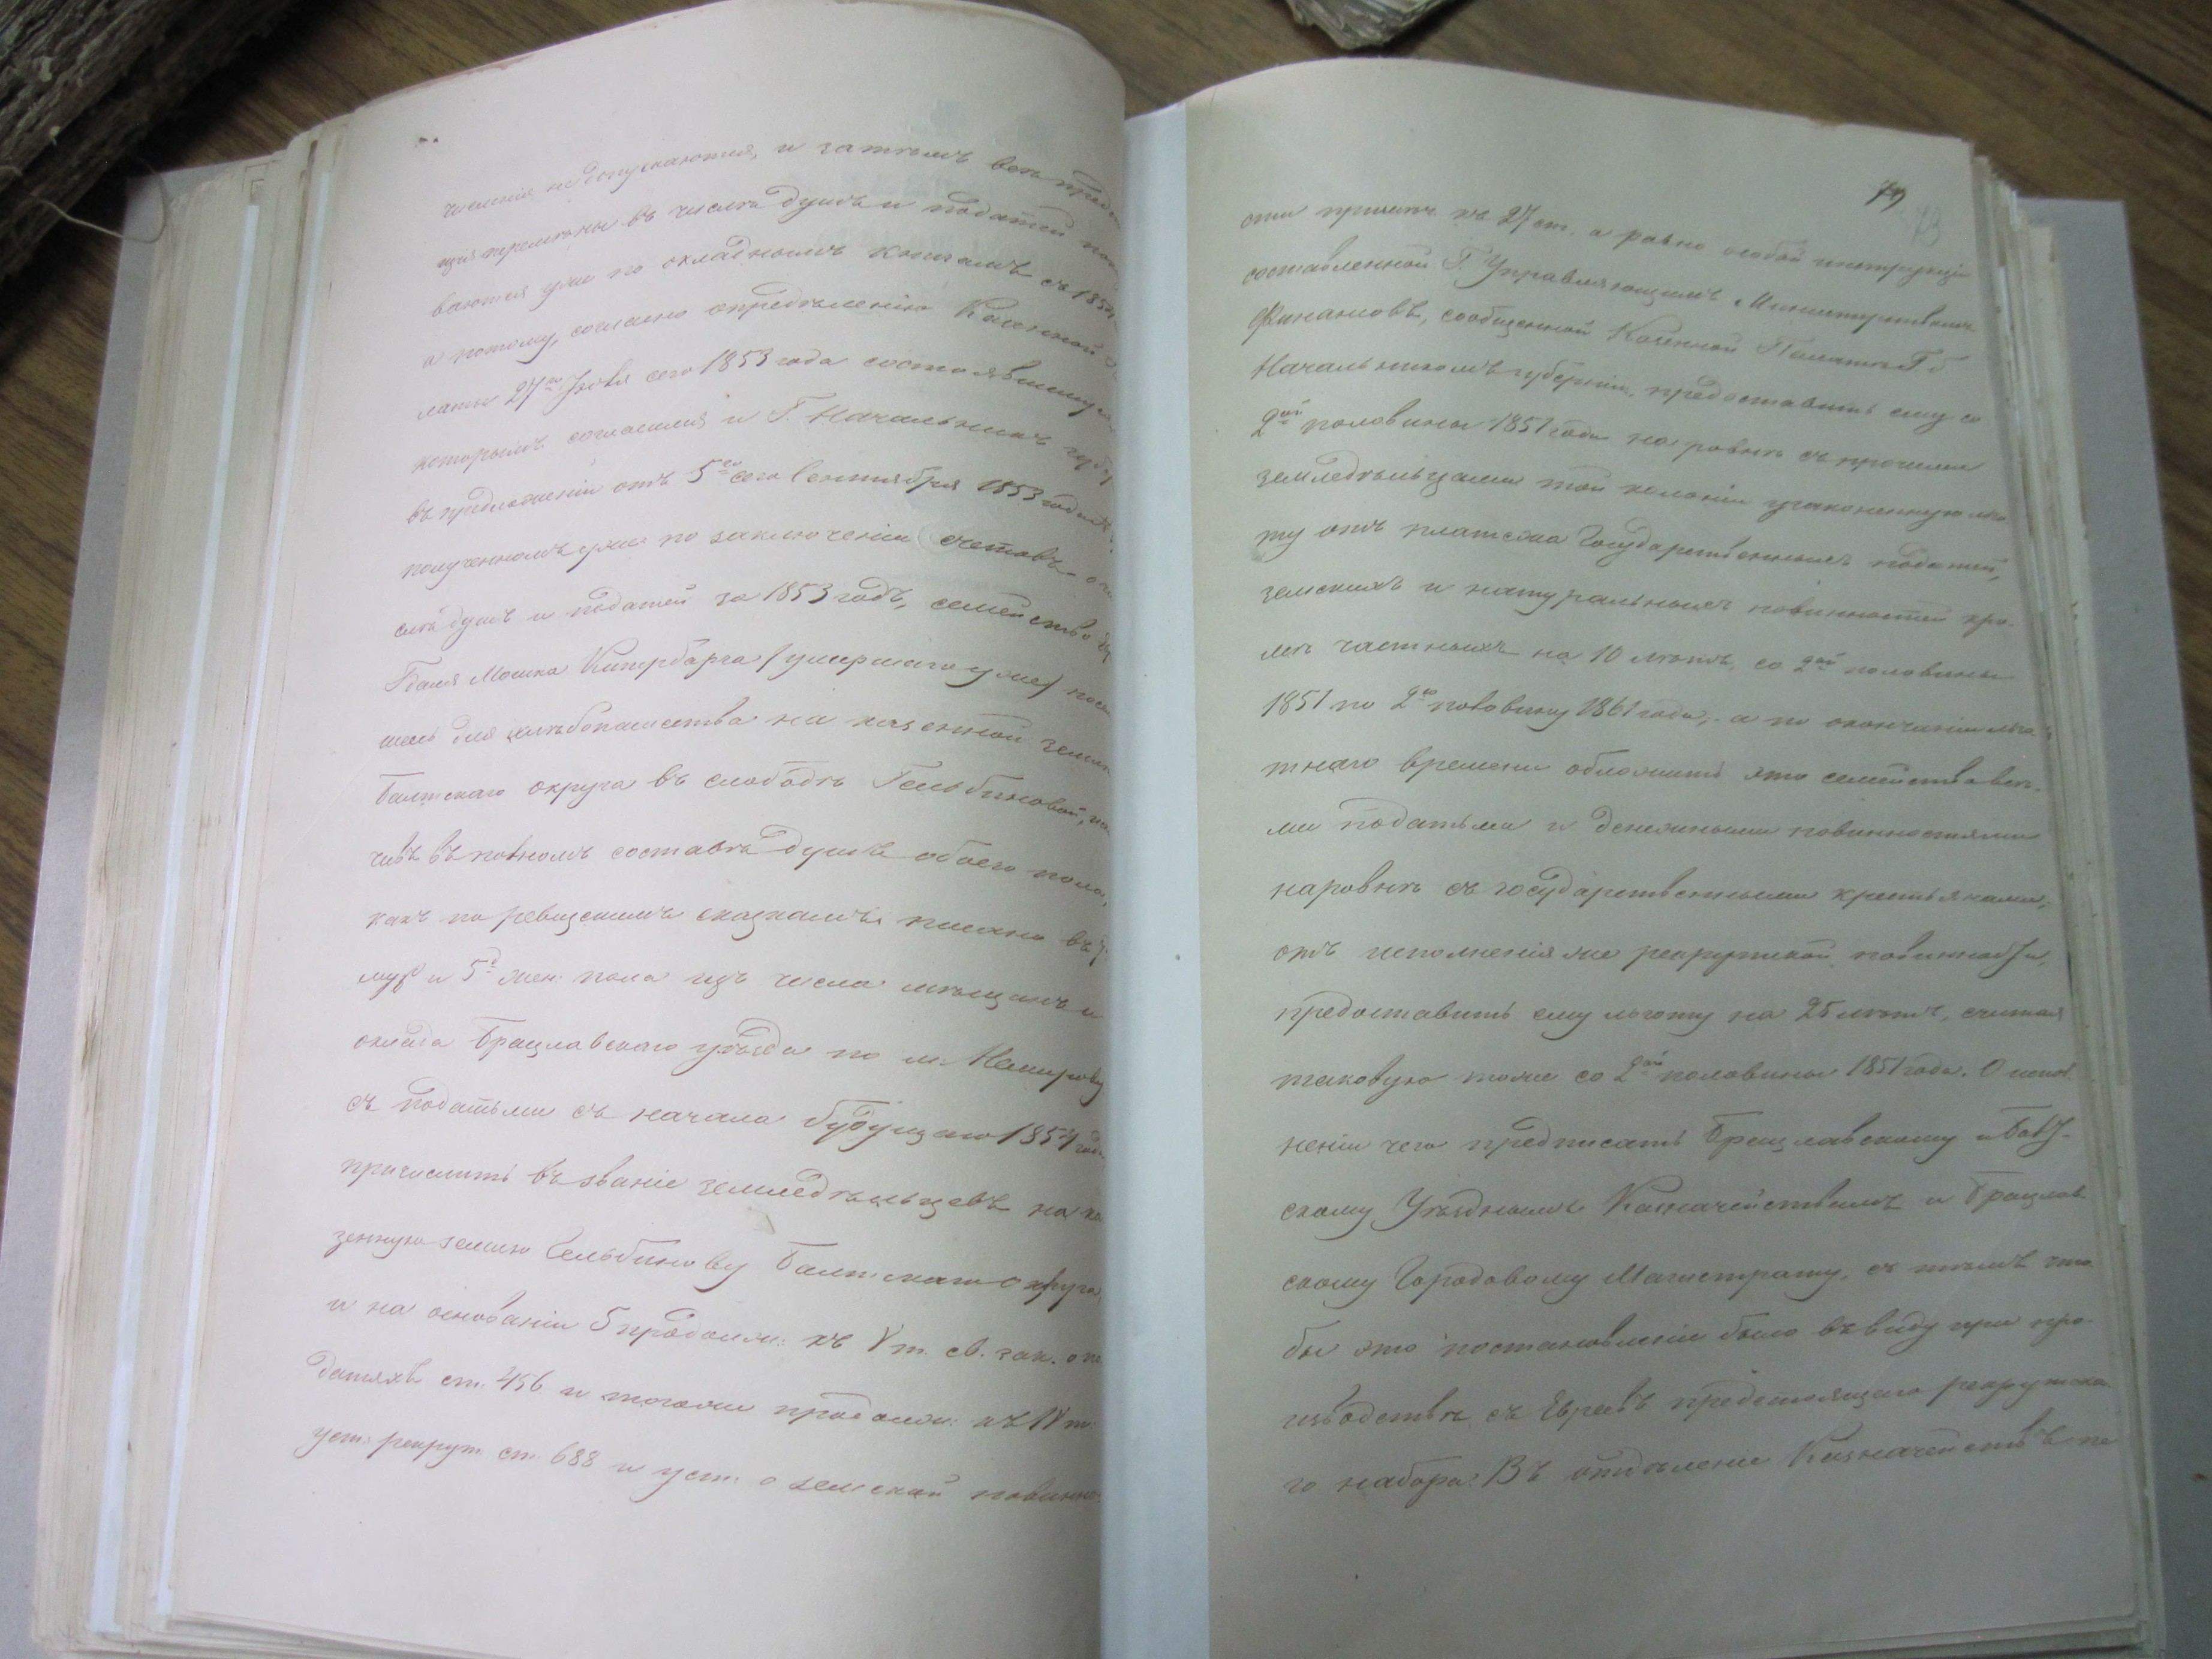 численія недопускаются, и затемъ все пред
щія перемены въ числе душъ и податей пока
ваются уже по окладнымъ книгамъ съ 1854
а потому, согласно определенію Казенной
латы 27го Іюля сего 1853 года состоявшемуся
которымъ согласился и Г. Начальникъ губер
въ предложеніи отъ 5го сего Сентября 1853 года
полученномъ уже по заключеніи счетовъ о чи
сле душъ и податей за 1853 годъ, семейство Ев
Мошка Китербарга /умершаго уже/ посе
шаго для хлебопашества на казенной земле
Балтскаго округа въ слободе Гельбиновой,
въ полномъ составе душъ обоего пола,
какъ по ревизскимъ сказкамъ писано въ
муж и 5д жен: пола изъ числа мещанъ и
оклада Брацлавскаго уезда по м. Немирову
съ податьми съ начала будущаго 1854 года
причислить въ званіе земледельцевъ на ка
зенную землю Гельбинову Балтскаго округа,
и на основаніи 5 продолж: къ V т. св. зак. о по
датяхъ ст. 456 и тогоже продолж: къ IV т.
уст: рекрут. ст. 688 и уст: о земской повинно
79
73
сти примеч. къ 27 ст. а равно особой инструкціи
составленной Г. Управляющимъ Министерствомъ
Финансовъ, сообщенной Казенной Палате Г.
Начальникомъ губерніи, предоставить ему со
2ой половины 1851 года на ровне съ прочими
земледельцами той колоніи узаконенную льго
ту отъ платежа Государственныхъ податей,
земскихъ и натуральныхъ повинностей кро-
ме частныхъ на 10 летъ, со 2ой половины
1851 по 2ю половину 1861 года; а по окончаніи льго
тнаго времени обложить это семейство все-
ми податьми и денежными повинностями
наровне съ государственными крестьянами;
отъ исполненія же рекрутской повинности,
предоставить ему льготу на 25 летъ, считая
таковую тоже со 2ой половины 1851 года. О испол
неніи чего предписать Брацлавскому и Балт-
скому Уезднымъ Казначействамъ и Брацлав-
скому Городовому Магистрату, съ темъ что
бы это постановленіе было въ виду при про-
изводстве съ Евреевъ предстоящаго рекрутска
го набора: Въ отделеніе Казначействъ пе